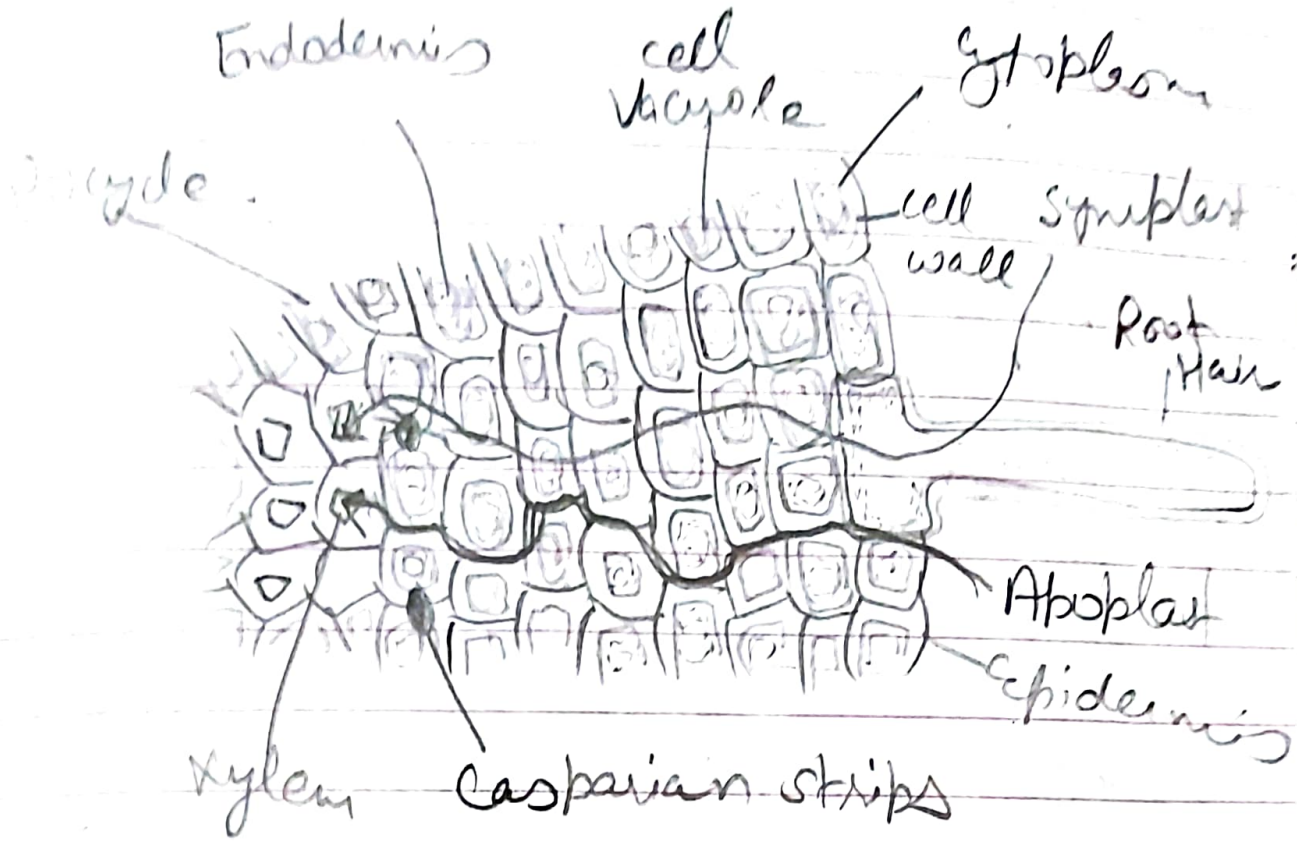 Endodermis
cell
vacuole
Cytoplasm
cell
wall
Symplast
Root
Hair
Apoplast
Epidermis
Xylem
Casparian strips